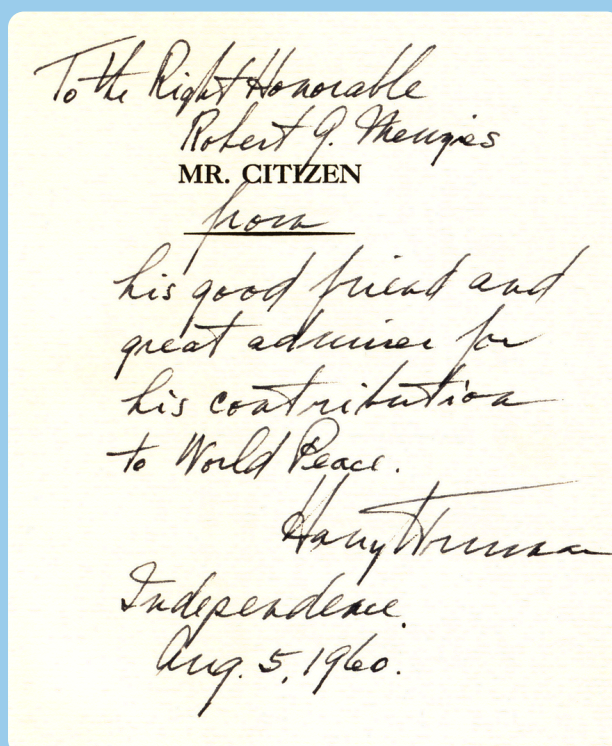 To the Right Honorable
Robert G. Menzies
MR. CITIZEN
from
his good friend and
great admirer for
his contribution
to World Peace.
Harry Truman
Independence.
Aug. 5, 1960.